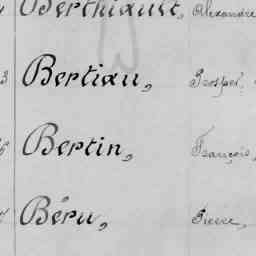 Berthiault, Alexandre
3 Bertiau, Prosper,
Bertin, François,
Béru, Pierre,